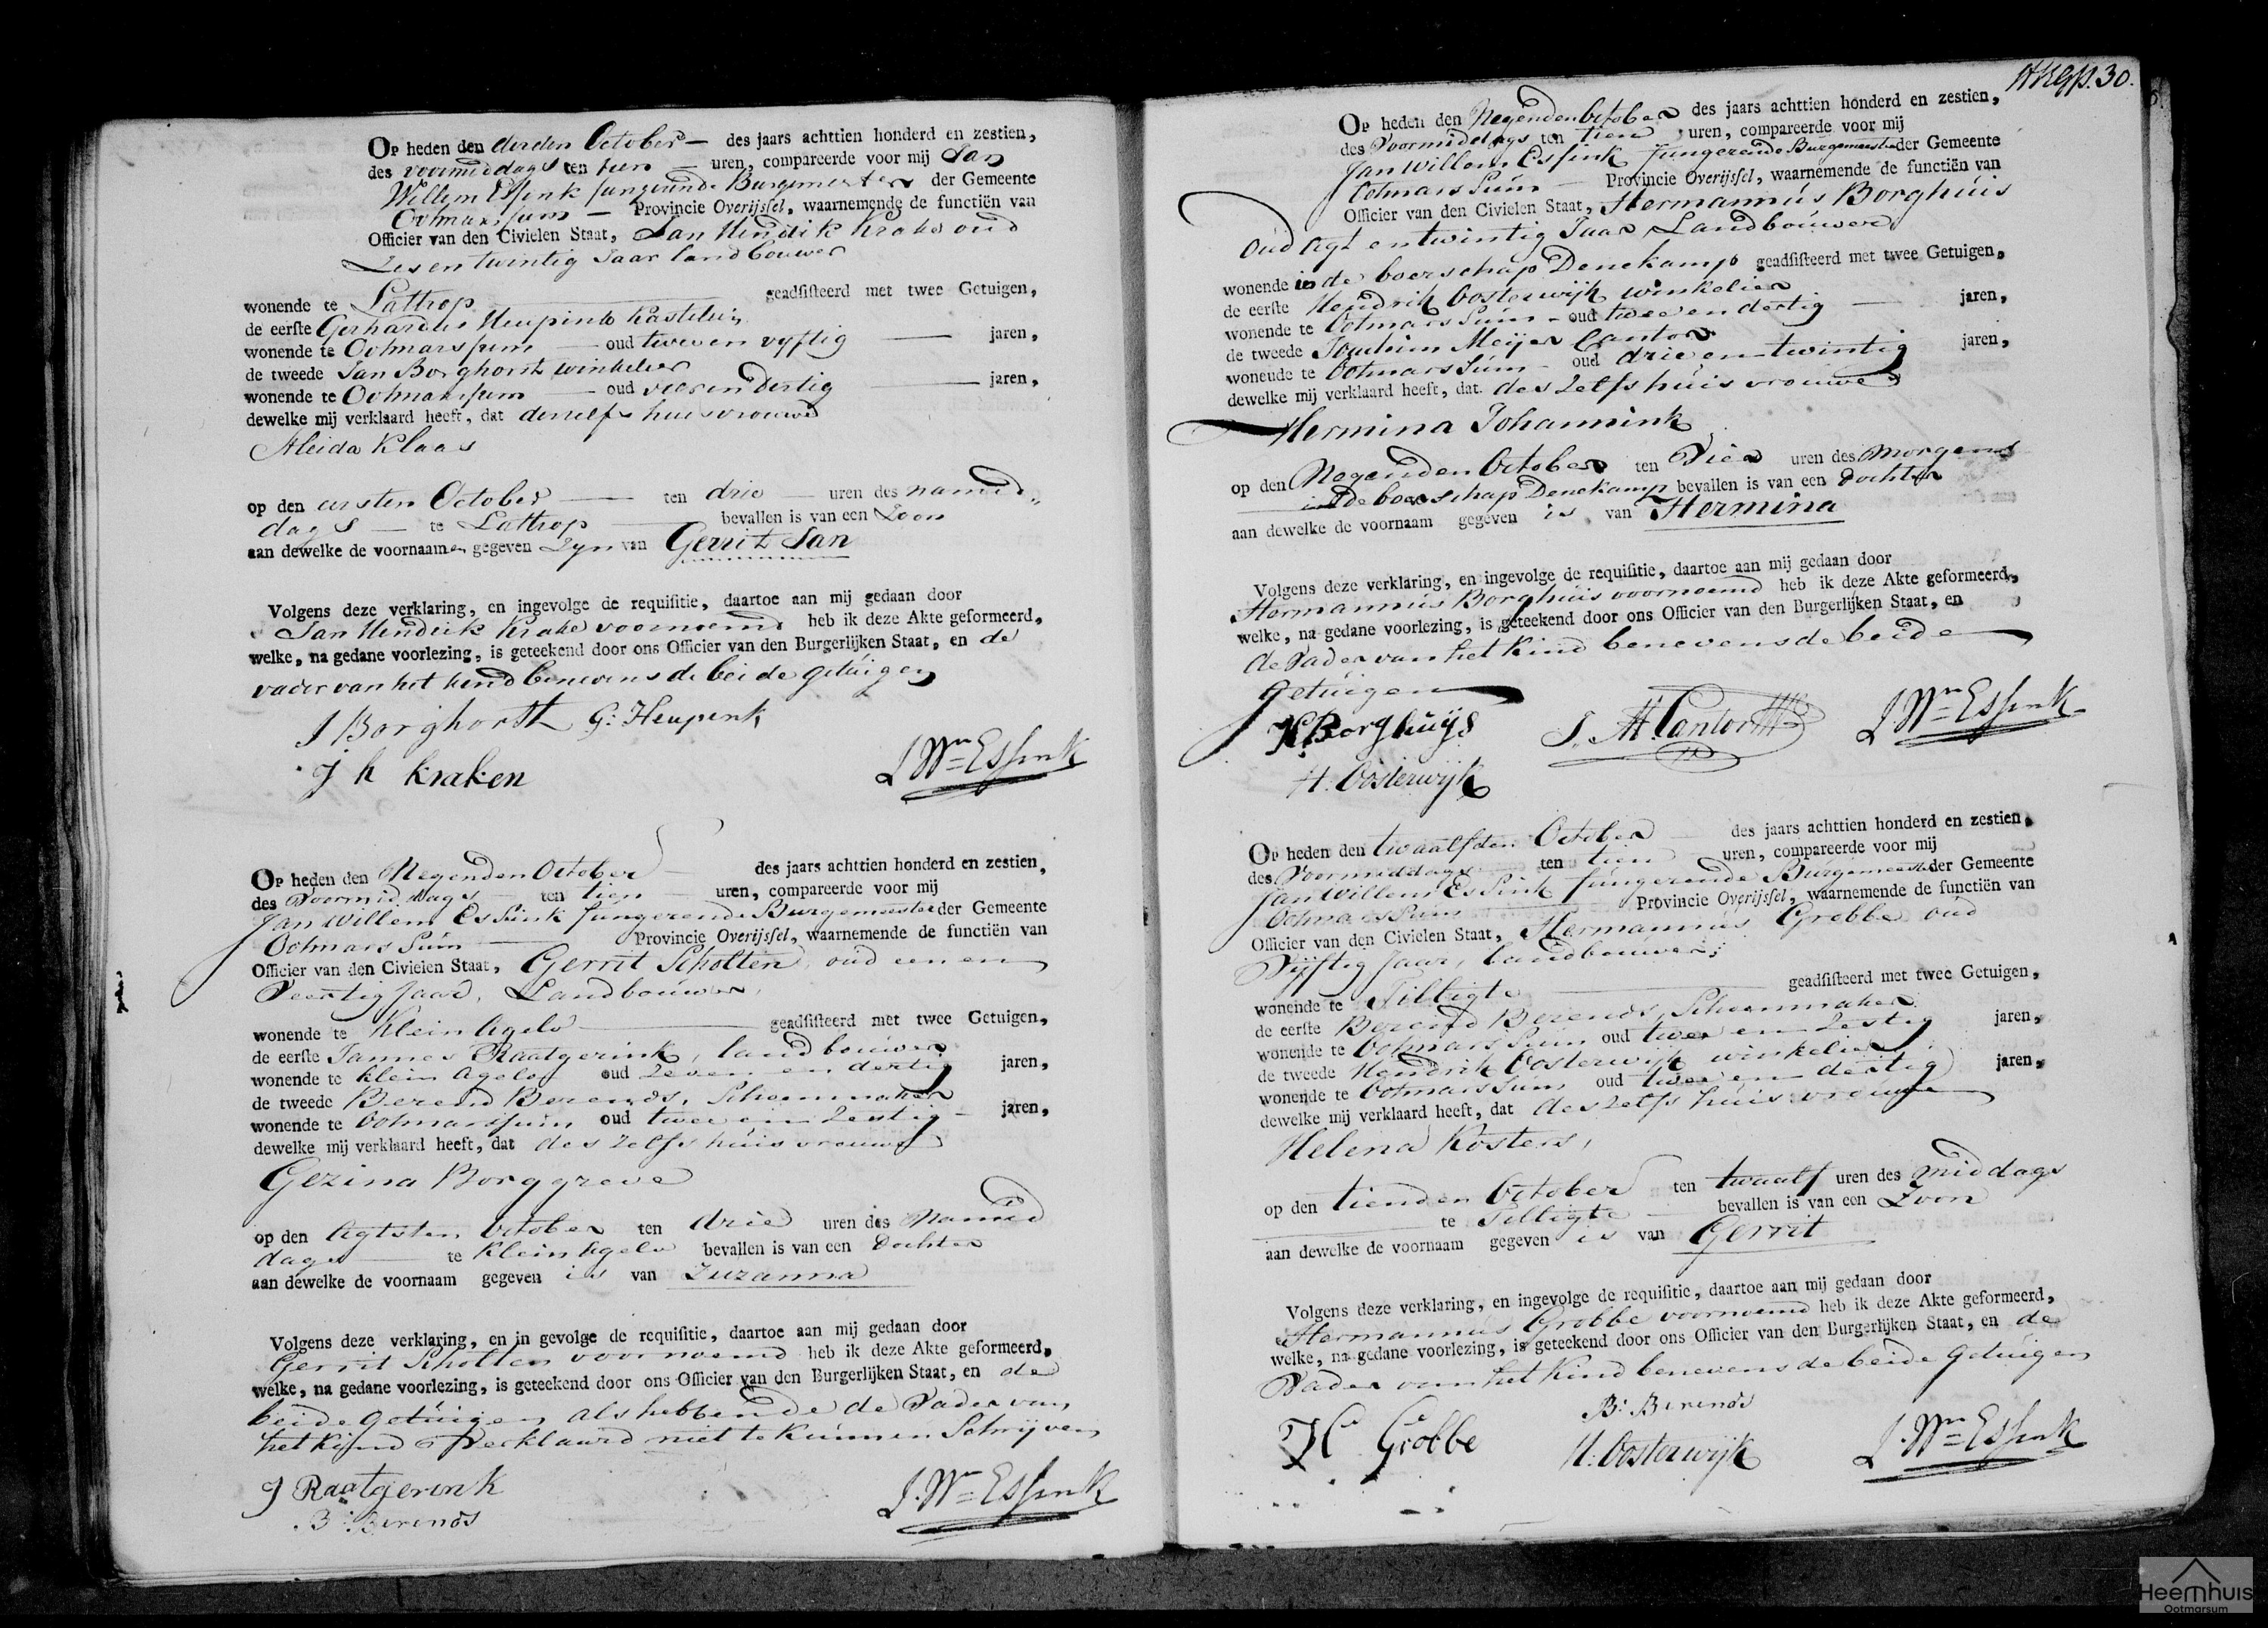 Op heden den derden October — des jaars achttien honderd en zestien,
des voormiddags ten tien — uren, compareerde voor mij Jan
Willem Essink fungerende Burgemeester der Gemeente
Ootmarssum — Provincie Overijssel, waarnemende de functiën van
Officier van den Civielen Staat, Jan Hendrik Krake oud
Zes en twintig Jaar landbouwer
wonende te Lattrop geadsisteerd met twee Getuigen,
de eerste Gerhardus Heupink Kastelein
wonende te Ootmarssum — oud twee en vyftig — jaren,
de tweede Jan Borghorst winkelier
wonende te Ootmarssum — oud vier en dertig — jaren,
dewelke mij verklaard heeft, dat deszelfs huisvrouwe
Aleida Klaas
op den eersten October — ten drie — uren des namid
dags — te Lattrop bevallen is van een Zoon
aan dewelke de voornaamen gegeven Zyn van Gerrit Jan
Volgens deze verklaring, en ingevolge de requisitie, daartoe aan mij gedaan door
Jan Hendrik Krake voornoemd heb ik deze Akte geformeerd,
welke, na gedane voorlezing, is geteekend door ons Officier van den Burgerlijken Staat, en de
vader van het kind benevens de beide getuigen
J Borghorst G: Heupink
J h kraken J Wm Essink
Op heden den Negenden October — des jaars achttien honderd en zestien,
des Voormiddags — ten tien — uren, compareerde voor mij
Jan Willem Essink fungerende Burgemeester der Gemeente
Ootmarssum — Provincie Overijssel, waarnemende de functiën van
Officier van den Civielen Staat, Gerrit Scholten oud een en
Veertig Jaar, Landbouwer,
wonende te Klein Agelo geadsisteerd met twee Getuigen,
de eerste Jannes Raatgerink, landbouwer
wonende te klein Agelo oud Zeven en dertig jaren,
de tweede Berend Berends, Schoenmaker
wonende te Ootmarssum oud twee en Zestig — jaren,
dewelke mij verklaard heeft, dat deszelfs huisvrouwe
Gezina Borggreve
op den Agtsten October ten drie uren des Namid
dags te Klein Agelo bevallen is van een Dochter
aan dewelke de voornaam gegeven is van Zuzanna
Volgens deze verklaring, en in gevolge de requisitie, daartoe aan mij gedaan door
Gerrit Scholten voornoemd heb ik deze Akte geformeerd,
welke, na gedane voorlezing, is geteekend door ons Officier van den Burgerlijken Staat, en de
beide getuigen als hebbende de Vader van
het Kind verklaard niet te kunnen Schrijven
J Raatgerink J. Wm Essink
B: Berends
30.
Op heden den Negenden October des jaars achttien honderd en zestien,
des Voormiddags ten tien uren, compareerde voor mij
Jan Willem Essink fungerende Burgemeester der Gemeente
Ootmarssum — Provincie Overijssel, waarnemende de functiën van
Officier van den Civielen Staat, Hermannus Borghuis
Oud Agt en twintig Jaar, Landbouwer
wonende in de boerschap Denekamp geadsisteerd met twee Getuigen,
de eerste Hendrik Oosterwijk winkelier
wonende te Ootmarssum — oud twee en dertig — jaren,
de tweede Joachim Meijer Cantor
wonende te Ootmarssum — oud drie en twintig jaren,
dewelke mij verklaard heeft, dat deszelfs huisvrouwe
Hermina Johannink
op den Negenden October ten Vier uren des morgens
in de boerschap Denekamp bevallen is van een Dochter
aan dewelke de voornaam gegeven is van Hermina
Volgens deze verklaring, en ingevolge de requisitie, daartoe aan mij gedaan door
Hermannus Borghuis voornoemd heb ik deze Akte geformeerd,
welke, na gedane voorlezing, is geteekend door ons Officier van den Burgerlijken Staat, en
de Vader van het Kind benevens de beide
getuigen
H Borghuijs J. M. Cantor J Wm Essink
H. Oosterwijk
Op heden den twaalfden October des jaars achttien honderd en zestien,
des Voormiddags ten tien uren, compareerde voor mij
Jan Willem Essink fungerende Burgemeester der Gemeente
Ootmarssum — Provincie Overijssel, waarnemende de functiën van
Officier van den Civielen Staat, Hermannus Grobbe oud
Vijftig Jaar, Landbouwer,
wonende te Tilligte geadsisteerd met twee Getuigen,
de eerste Berend Berends, Schoenmaker
wonende te Ootmarssum oud twee en Zestig jaren,
de tweede Hendrik Oosterwijk winkelier
wonende te Ootmarssum oud twee en dertig jaren,
dewelke mij verklaard heeft, dat deszelfs huisvrouwe
Helena Kosters,
op den tienden October ten twaalf uren des middags
te Tilligte bevallen is van een Zoon
aan dewelke de voornaam gegeven is van Gerrit
Volgens deze verklaring, en ingevolge de requisitie, daartoe aan mij gedaan door
Hermannus Grobbe voornoemd heb ik deze Akte geformeerd,
welke, na gedane voorlezing, is geteekend door ons Officier van den Burgerlijken Staat, en de
Vader van het Kind benevens de beide Getuigen
B: Berends
H Grobbe H: Oosterwijk J. Wm Essink
Heemhuis
Ootmarsum